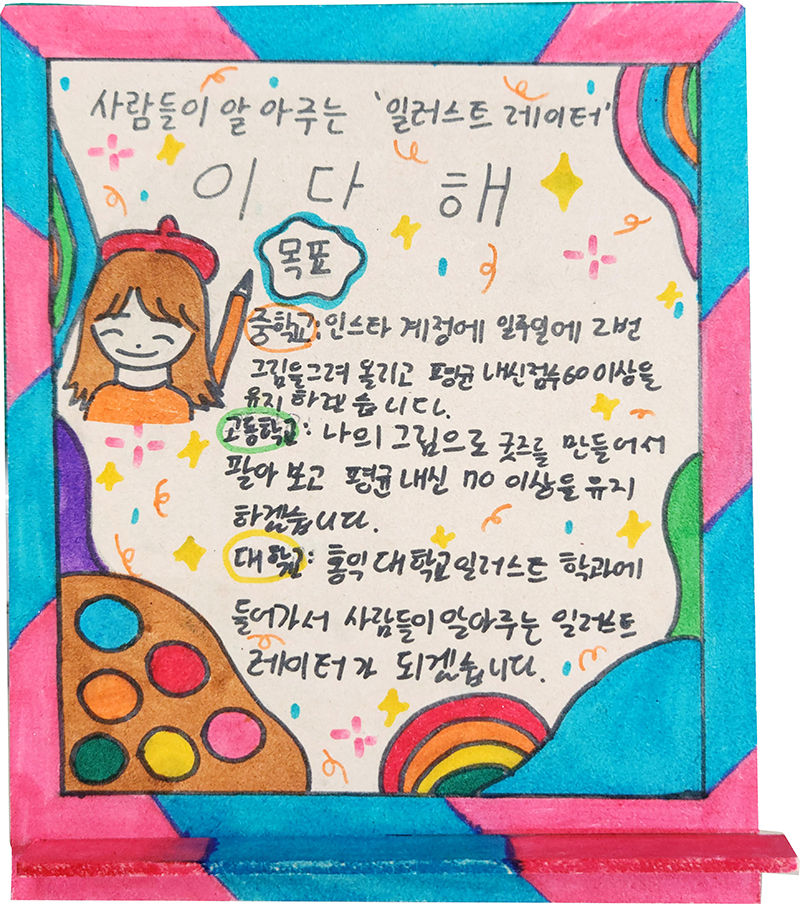 사람들이 알아주는 '일러스트레이터'
이다해
목표
중학교: 인스타 계정에 일주일에 2번
그림을그려 올리고 평균 내신점수60이상을
유지하겠습니다.
고등학교: 나의 그림으로 굿즈를 만들어서
팔아 보고 평균내신 70 이상을 유지
하겠습니다.
대학교: 홍익대학교일러스트 학과에
들어가서 사람들이알아주는 일러스트
레이터가 되겠습니다.